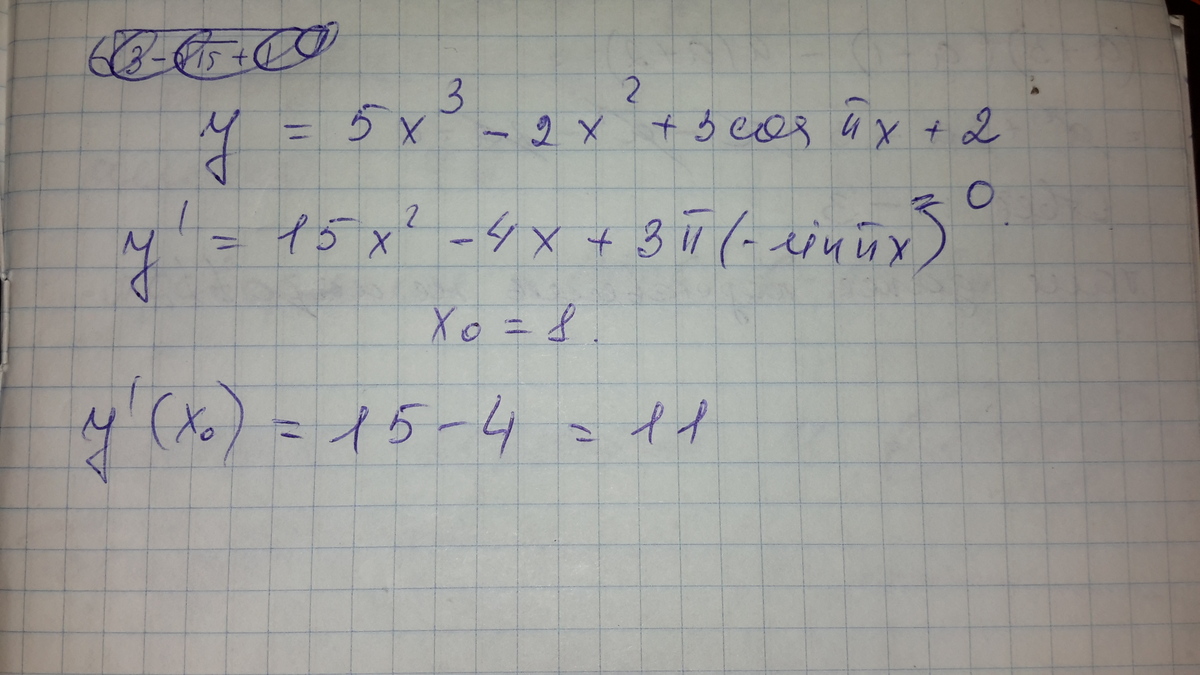 y = 5x³ - 2x² + 3cos πx + 2
y' = 15x² - 4x + 3π(-sin πx) = 0.
x₀ = 1.
y'(x₀) = 15 - 4 = 11